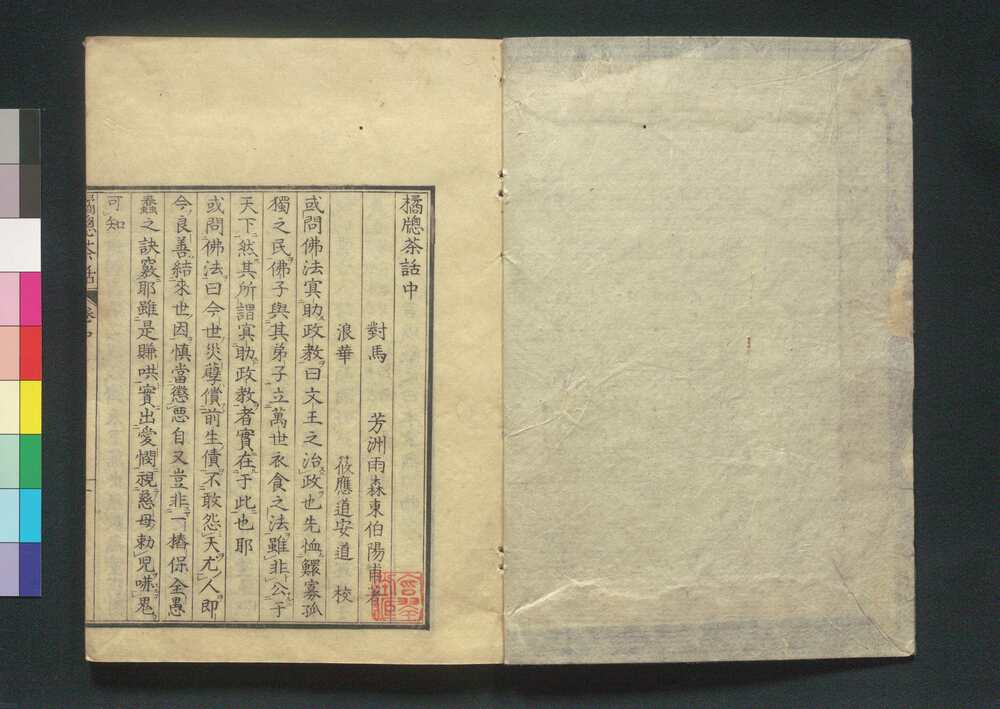 橘牕茶話中
對馬 芳洲雨森東伯陽甫著
浪華 筱應道安道 校
或問佛法冥助政教曰文王之治政也先恤鰥寡孤
獨之民佛子與其弟子立萬世衣食之法雖非公于
天下然其所謂冥助政教者實在于此也耶
或問佛法曰今世災孽償前生債不敢怨天尤人即
今良善結來世因慎當懲惡自又豈非一樁保全愚
蠢之訣竅耶雖是賺哄實出愛憫視慈母勅兒嚇鬼
可知
橘牕茶話 卷中